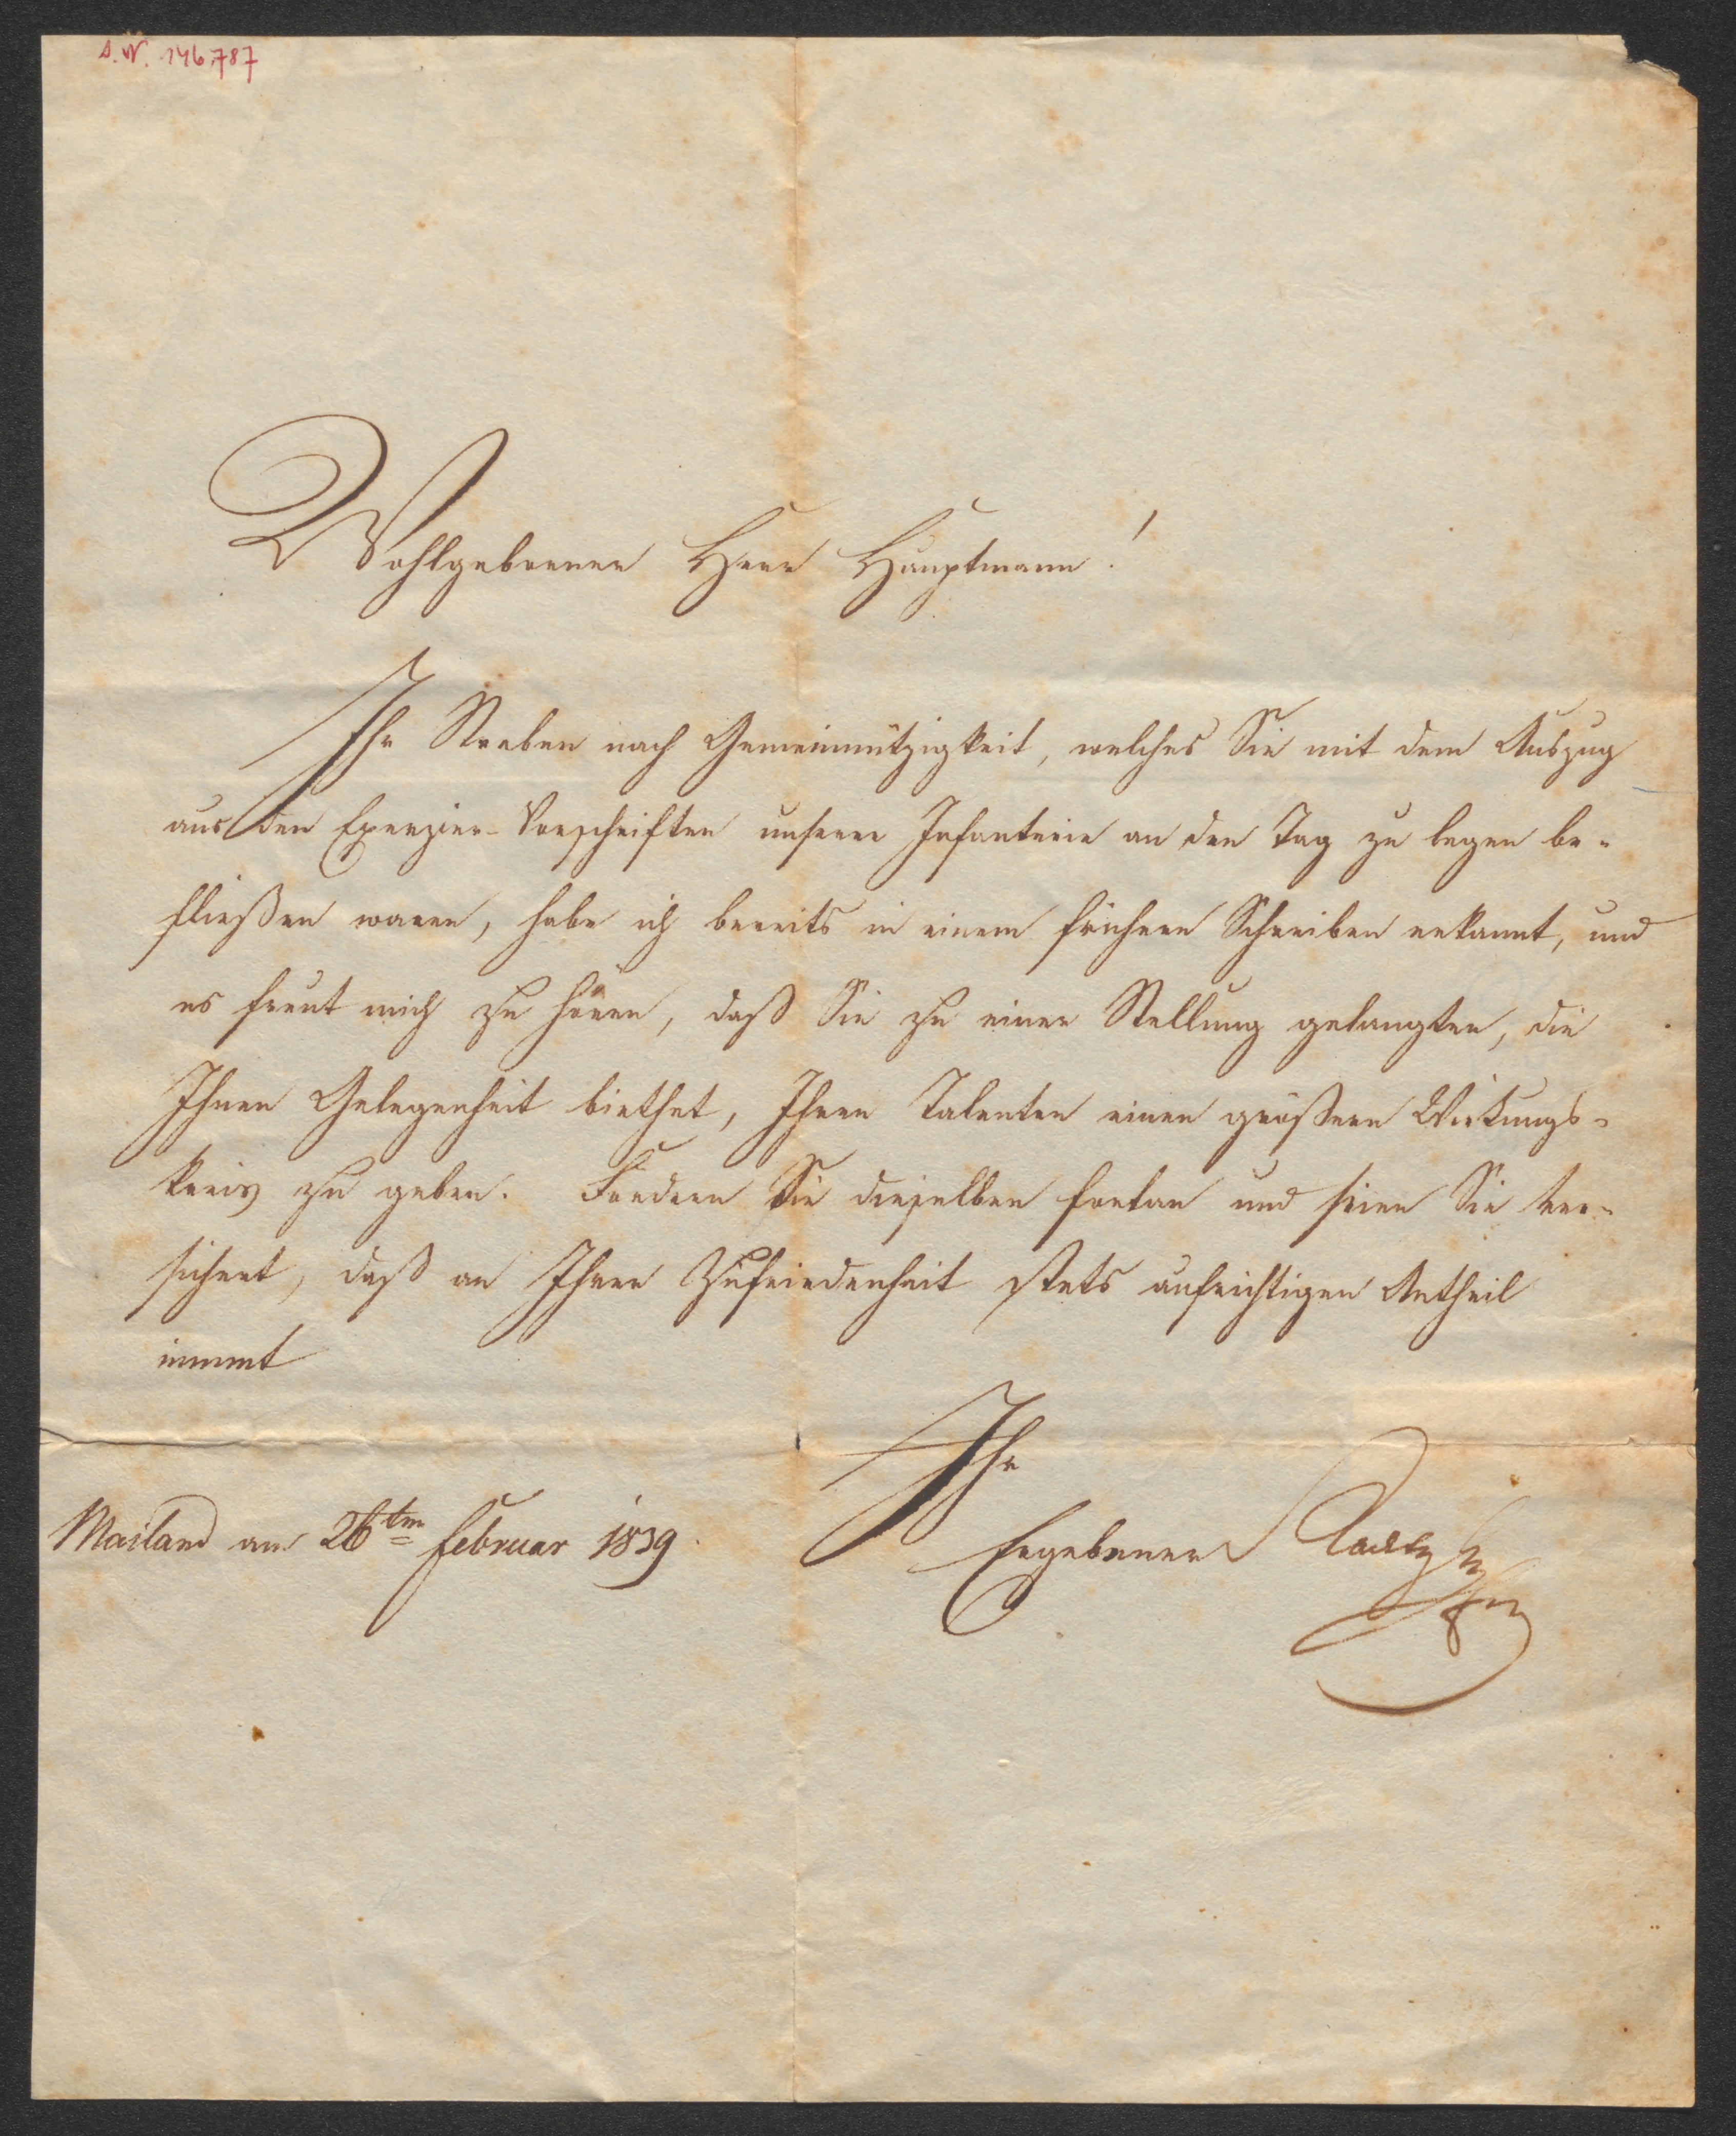 A.N. 146.787
Wohlgeborner Herr Hauptmann!
Ihr Streben nach Gemeinnützigkeit, welches Sie mit dem Auszug
aus den Exerzier-Vorschriften unserer Infanterie an den Tag zu legen be-
fließen waren, habe ich bereits in einem frühern Schreiben erkannt, und
es freut mich zu hören, daß Sie zu einer Stellung gelangten, die
Ihnen Gelegenheit biethet, Ihren Talenten einen größern Wirkungs-
kreis zu geben. Fördern Sie dieselben fortan und seien Sie ver-
sichert, daß an Ihrer Zufriedenheit stets aufrichtigen Antheil
nimmt
Ihr
Mailand am 26ten Februar 1839.
Ergebener Radetzky